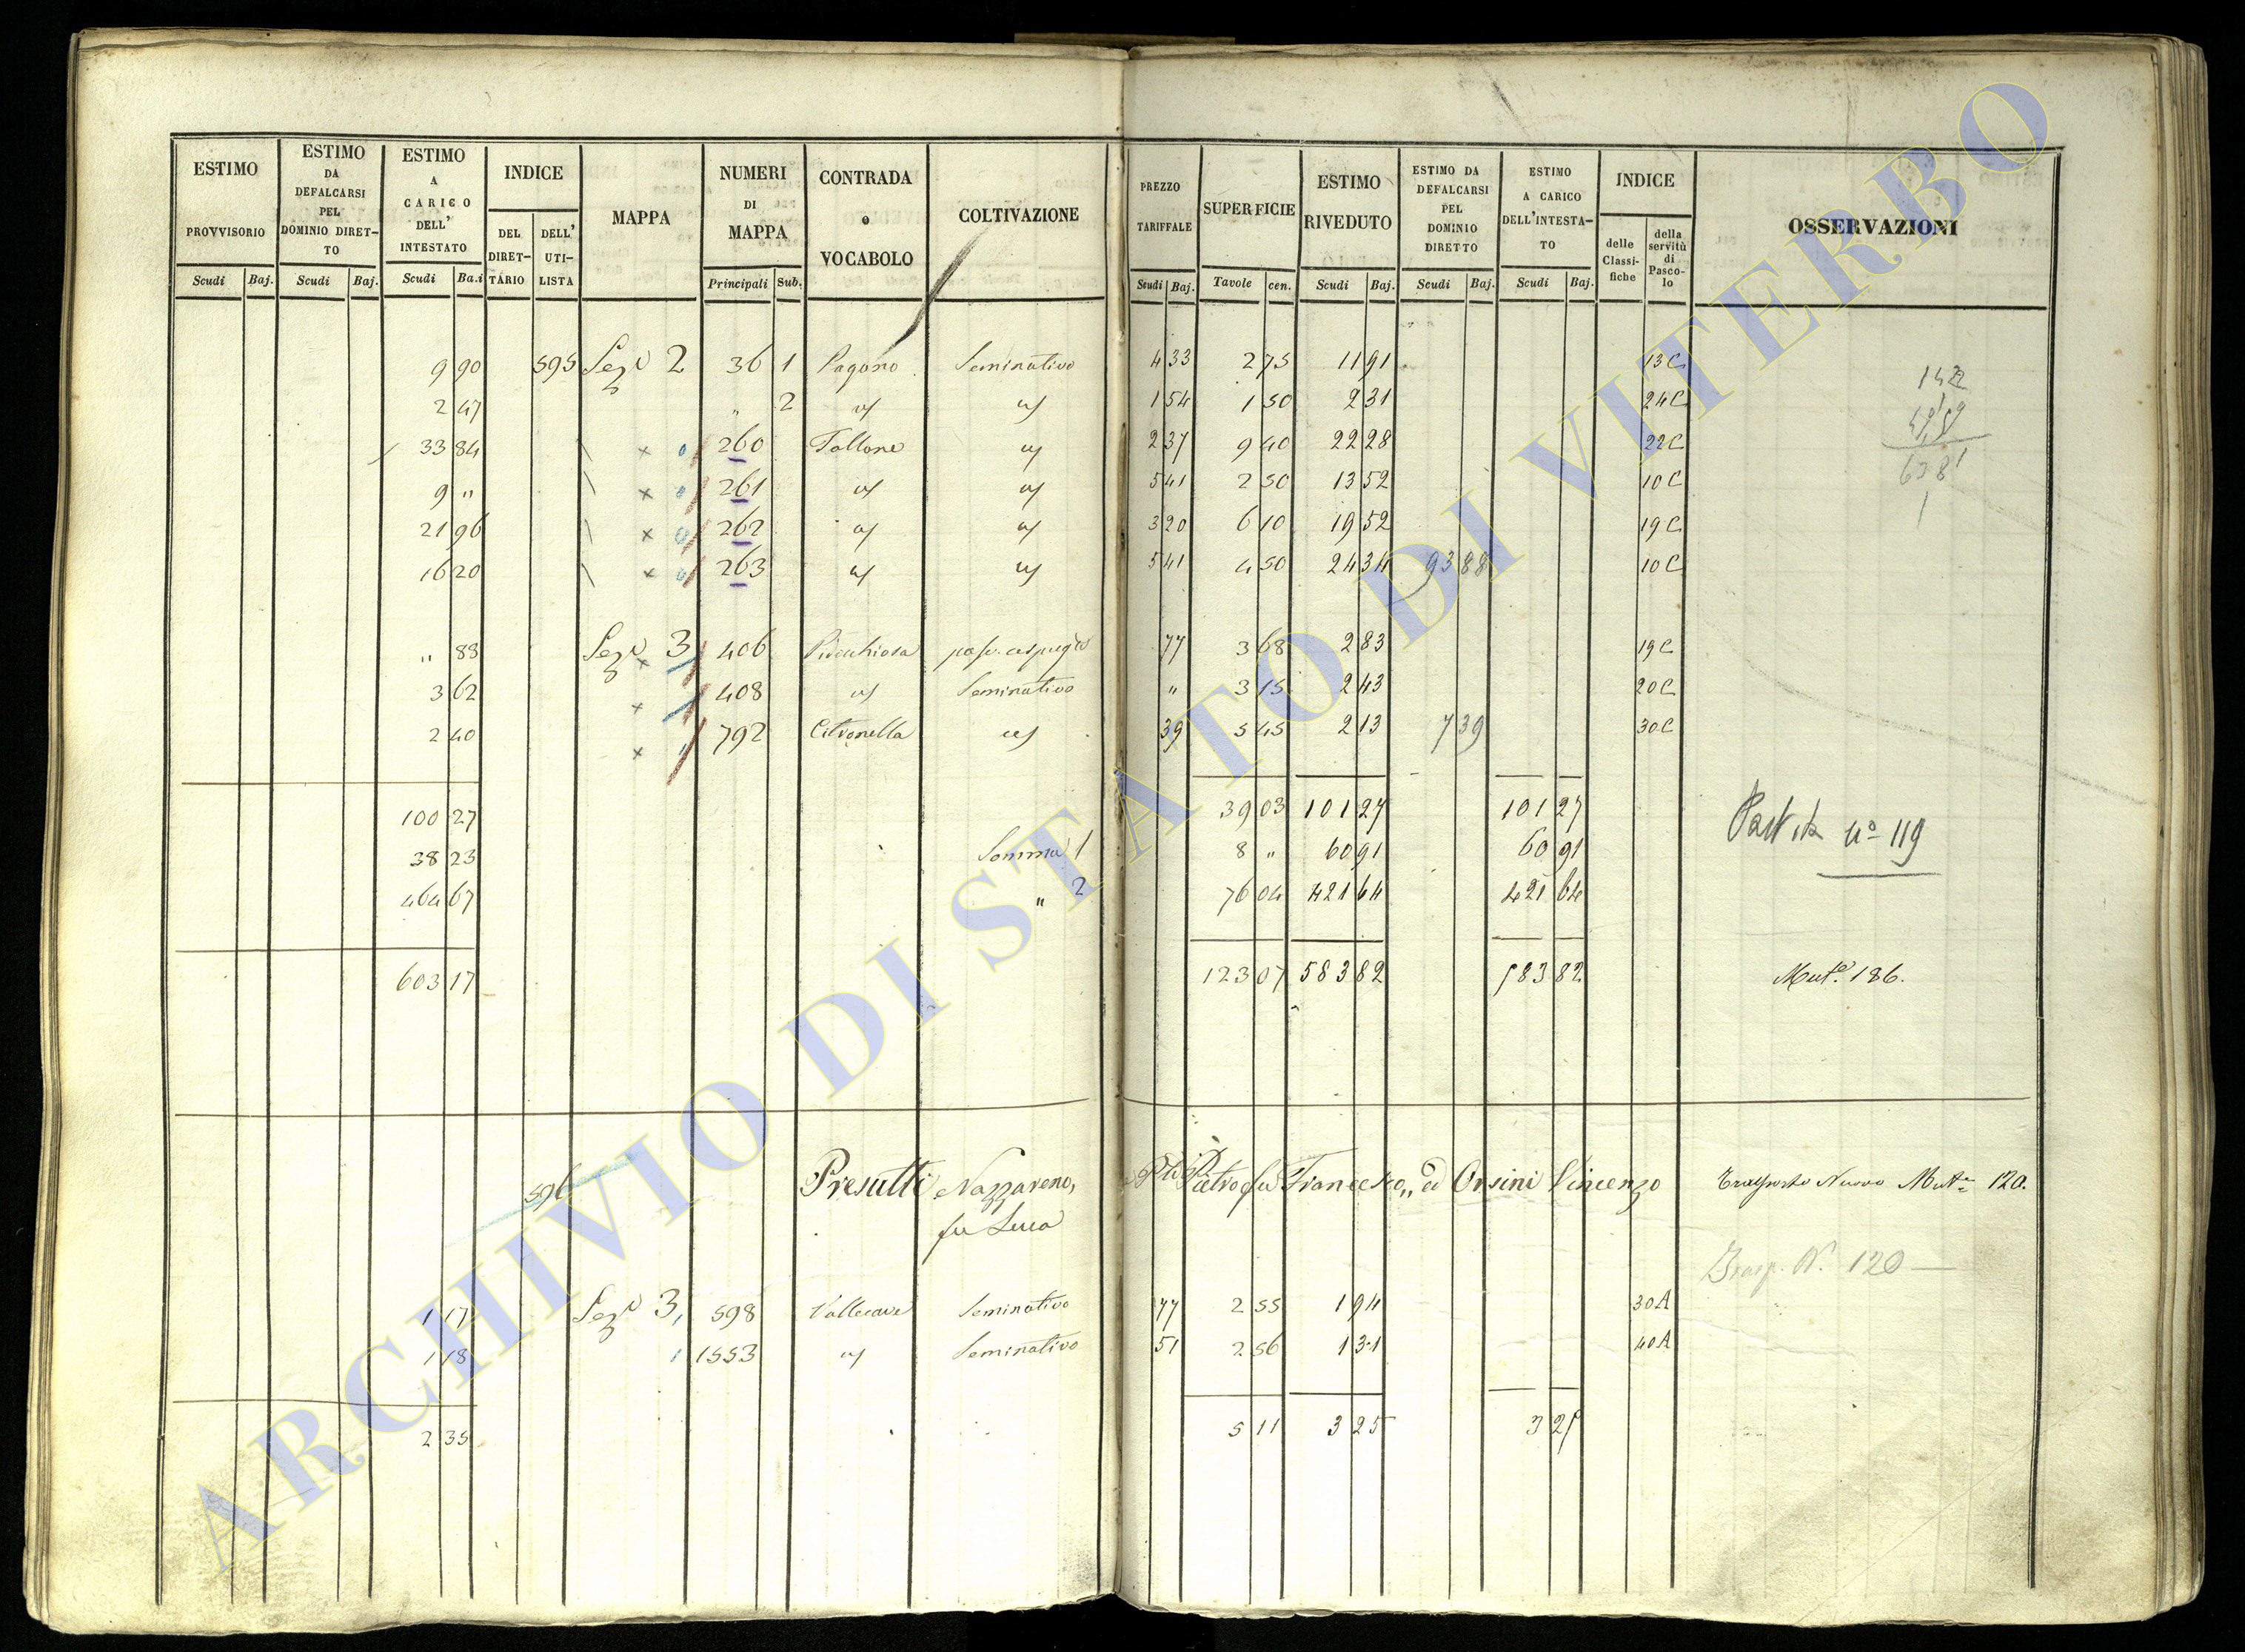 ESTIMO PROVVISORIO Scudi Baj.
ESTIMO DA DEFALCARSI PEL DOMINIO DIRET- TO Scudi Baj.
ESTIMO A CARICO DELL' INTESTATO Scudi Ba.i
INDICE DEL DIRET- TARIO DELL' UTI- LISTA
MAPPA
NUMERI DI MAPPA Principali Sub.
CONTRADA o VOCABOLO
COLTIVAZIONE
PREZZO TARIFFALE Scudi Baj.
SUPERFICIE Tavole cen.
ESTIMO RIVEDUTO Scudi Baj.
ESTIMO DA DEFALCARSI PEL DOMINIO DIRETTO Scudi Baj.
ESTIMO A CARICO DELL'INTESTA- TO Scudi Baj.
INDICE delle Classi- fiche della servitù di Pasco- lo
OSSERVAZIONI
9 90 595 Sez.e 2 36 1 Pagano Seminativo 4 33 2 75 11 91 13 C
2 47 " 2 " " 1 54 1 50 2 31 24 C
33 84 x 0 260 Tallone " 2 37 9 40 22 28 22 C
9 " x 0 261 " " 5 41 2 50 13 52 10 C
21 96 x 0 262 " " 3 20 6 10 19 52 19 C
16 20 x 0 263 " " 5 41 4 50 24 34 93 88 10 C
" 88 Sez.e 3 x 406 77 3 68 2 83 19 C
3 62 x 408 " Seminativo " 3 15 2 43 20 C
2 40 x 792 Citronella " 39 5 45 2 13 7 39 30 C
100 27 39 03 101 27 101 27
38 23 Somma 1 8 " 60 91 60 91
464 67 " 2 76 04 421 64 421 64
603 17 123 07 583 82 583 82 Mut.e 186.
142
6381
1
Partita n° 119
596 Presutti Nazzareno, Pietro fu Francesco, ed Orsini Vincenzo Trasporto Nuovo Mut.e 120.
fu Luca
Trasp. N. 120
1 17 Sez.e 3, 598 Vallecave Seminativo 77 2 55 1 94 30 A
1 18 1 1553 " Seminativo 51 2 56 1 31 40 A
2 35 5 11 3 25 3 25
ARCHIVIO DI STATO DI VITERBO